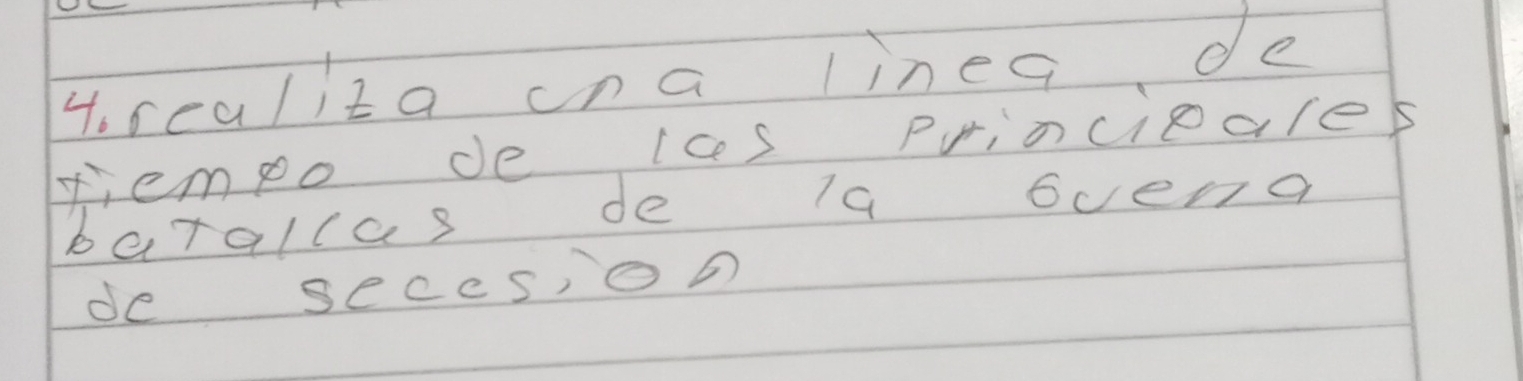 4. realiza una linea de
tiempo de las principales
batallas de la Guerra
de secesion